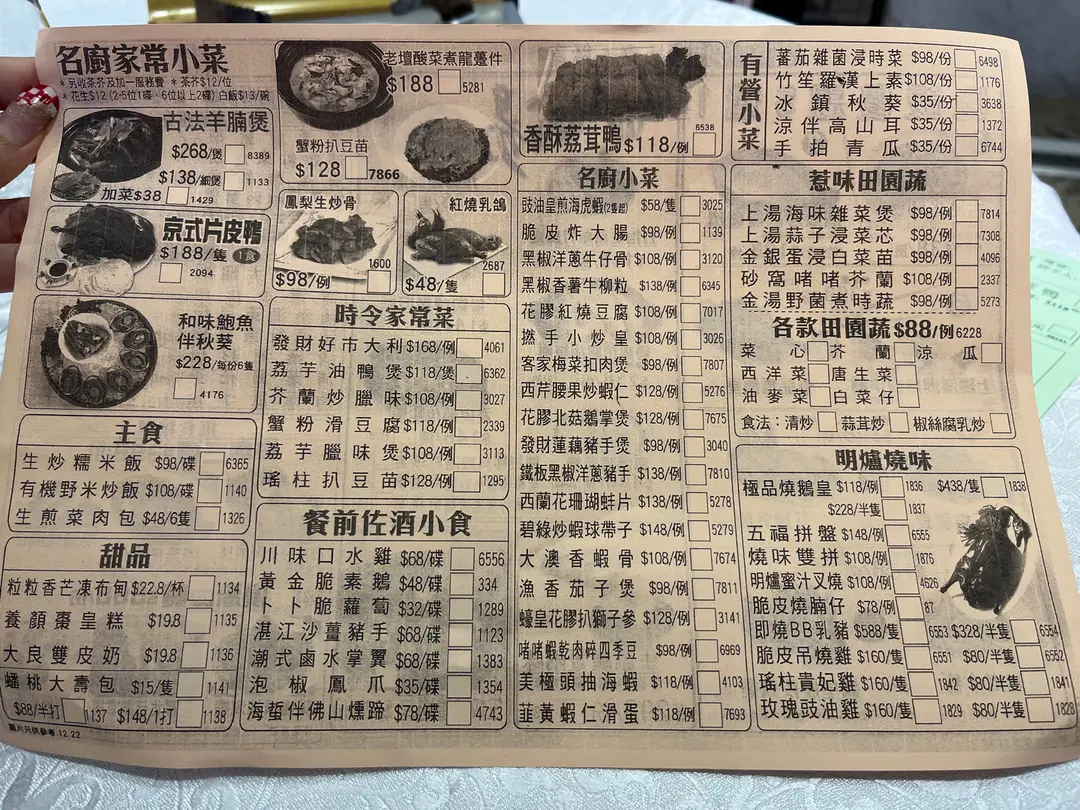 名廚家常小菜
* 另收茶芥及加一服務費 * 茶芥$12/位
* 花生$12 (2-5位1碟，6位以上2碟) 白飯$13/碗
古法羊腩煲
$268/煲 8389
$138/細煲 1133
加菜$38 1429
京式片皮鴨
$188/隻 1食
2094
和味鮑魚
伴秋葵
$228/每份6隻
4176
主食
生炒糯米飯 $98/碟 6365
有機野米炒飯 $108/碟 1140
生煎菜肉包 $48/6隻 1326
甜品
粒粒香芒凍布甸 $22.8/杯 1134
養顏棗皇糕 $19.8 1135
大良雙皮奶 $19.8 1136
蟠桃大壽包 $15/隻 1141
$88/半打 1137 $148/1打 1138
圖片只供參考 12.22
老壇酸菜煮龍躉件
$188 5281
蟹粉扒豆苗
$128 7866
鳳梨生炒骨
1600
$98/例
紅燒乳鴿
2687
$48/隻
時令家常菜
發財好市大利 $168/例 4061
荔芋油鴨煲 $118/煲 6362
芥蘭炒臘味 $108/例 3027
蟹粉滑豆腐 $118/例 2339
荔芋臘味煲 $108/例 3113
瑤柱扒豆苗 $128/例 1295
餐前佐酒小食
川味口水雞 $68/碟 6556
黃金脆素鵝 $48/碟 334
卜卜脆蘿蔔 $32/碟 1289
湛江沙薑豬手 $68/碟 1123
潮式鹵水掌翼 $68/碟 1383
泡椒鳳爪 $35/碟 1354
海蜇伴佛山燻蹄 $78/碟 4743
香酥荔茸鴨 $118/例 6538
名廚小菜
豉油皇煎海虎蝦(2隻起) $58/隻 3025
脆皮炸大腸 $98/例 1139
黑椒洋蔥牛仔骨 $108/例 3120
黑椒香薯牛柳粒 $138/例 6345
花膠紅燒豆腐 $108/例 7017
撚手小炒皇 $108/例 3026
客家梅菜扣肉煲 $98/例 7807
西芹腰果炒蝦仁 $128/例 5276
花膠北菇鵝掌煲 $128/例 7675
發財蓮藕豬手煲 $98/例 3040
鐵板黑椒洋蔥豬手 $138/例 7810
西蘭花珊瑚蚌片 $138/例 5278
碧綠炒蝦球帶子 $148/例 5279
大澳香蝦骨 $108/例 7674
漁香茄子煲 $98/例 7811
蠔皇花膠扒獅子參 $128/例 3141
啫啫蝦乾肉碎四季豆 $98/例 6969
美極頭抽海蝦 $118/例 4103
韮黃蝦仁滑蛋 $118/例 7693
有營小菜
番茄雜菌浸時菜 $98/份 6498
竹笙羅漢上素 $108/份 1176
冰鎮秋葵 $35/份 3638
涼伴高山耳 $35/份 1372
手拍青瓜 $35/份 6744
惹味田園蔬
上湯海味雜菜煲 $98/例 7814
上湯蒜子浸菜芯 $98/例 7308
金銀蛋浸白菜苗 $98/例 4096
砂窩啫啫芥蘭 $108/例 2337
金湯野菌煮時蔬 $98/例 5273
各款田園蔬$88/例 6228
菜心 芥蘭 涼瓜
西洋菜 唐生菜
油麥菜 白菜仔
食法：清炒 蒜茸炒 椒絲腐乳炒
明爐燒味
極品燒鵝皇 $118/例 1836 $438/隻 1838
$228/半隻 1837
五福拼盤 $148/例 6555
燒味雙拼 $108/例 1876
明爐蜜汁叉燒 $108/例 4626
脆皮燒腩仔 $78/例 87
即燒BB乳豬 $588/隻 6553 $328/半隻 6554
脆皮吊燒雞 $160/隻 6551 $80/半隻 6552
瑤柱貴妃雞 $160/隻 1842 $80/半隻 1841
玫瑰豉油雞 $160/隻 1829 $80/半隻 1828